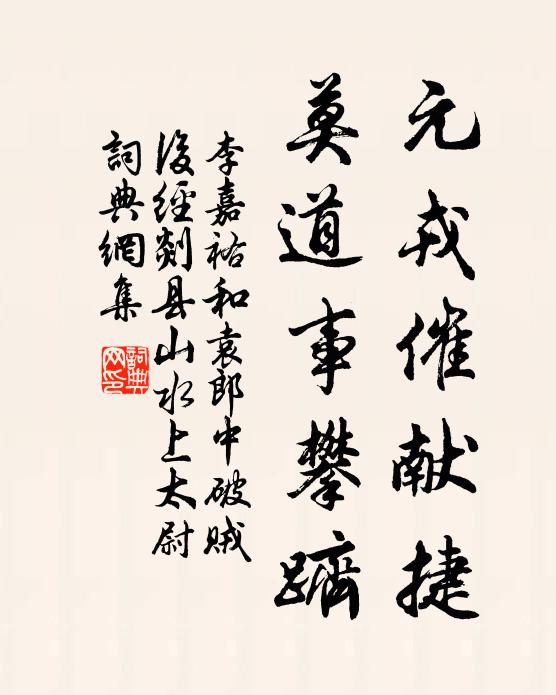 元戎催献捷
莫道事攀躋
李嘉祐和袁郎中破贼
後經剡县山水上太尉
詞典網集
詞典
网印